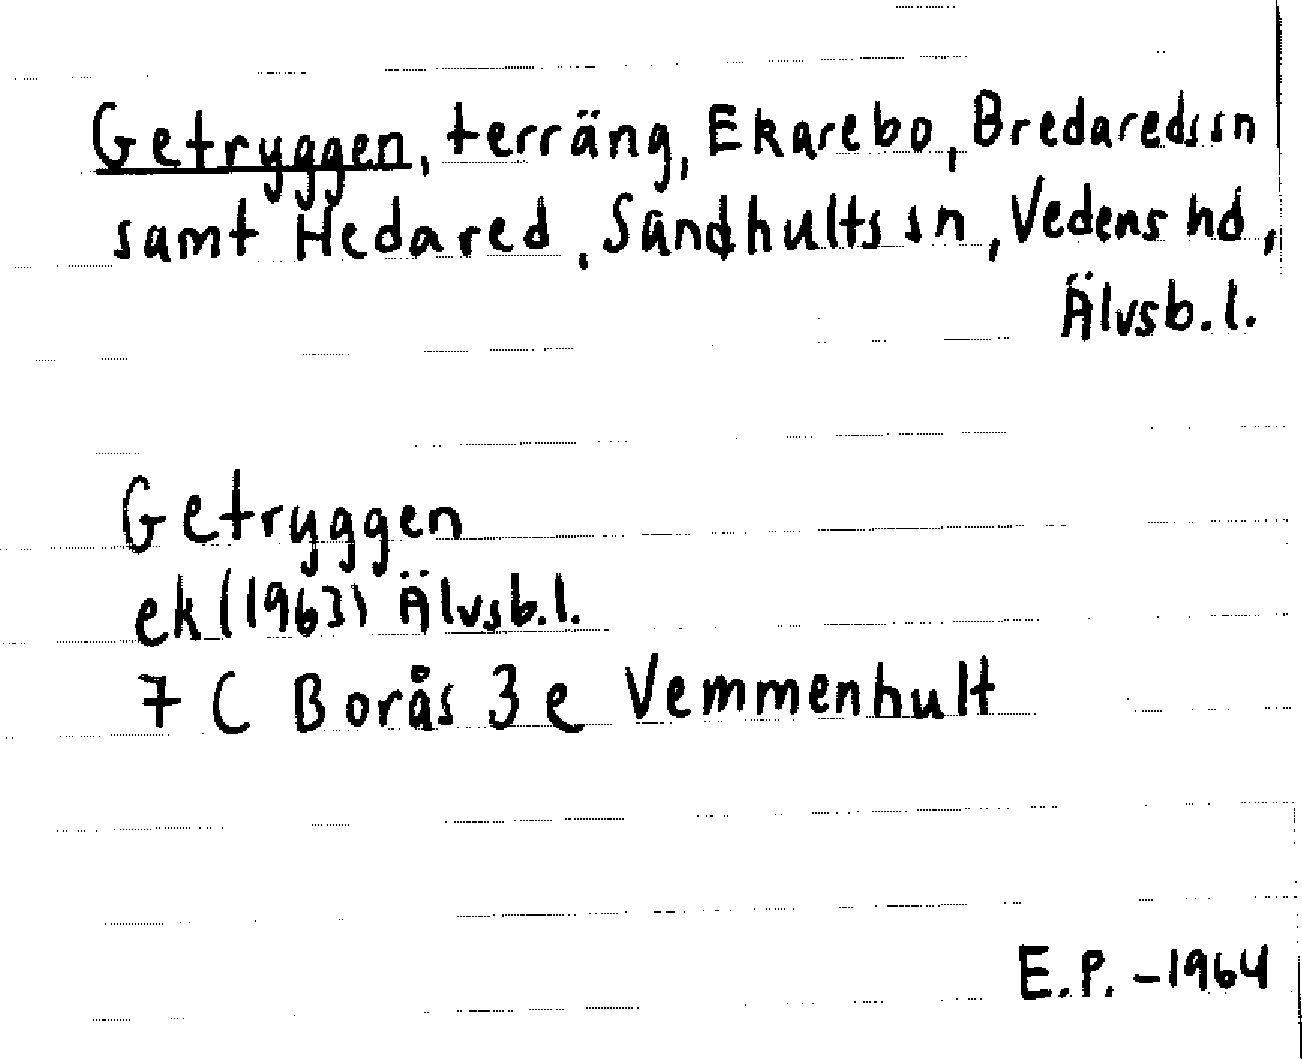 Getryggen, terräng, Ekarebo, Bredareds sn
samt Hedared, Sandhults sn, Vedens hd,
Älvsb. l.
Getryggen
ek (1963) Älvsb. l.
7 C Borås 3 e Vemmenhult
E.P. -1964